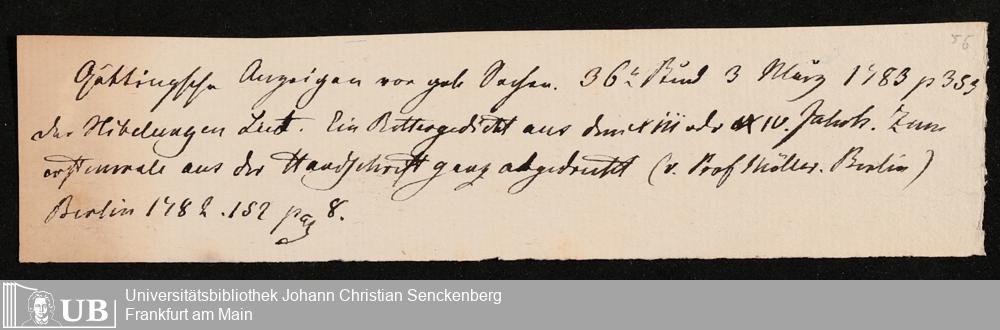 56
Göttingsche Anzeigen von gel. Sachen. 36r Stück 3 März 1783 p 353
Der Nibelungen Liet. Ein Rittergedicht aus dem XIII oder XIV. Jahrh. Zum
erstenmale aus der Handschrift ganz abgedruckt (v. Prof Müller. Berlin)
Berlin 1782. 152 pag 8.
UB
Universitätsbibliothek Johann Christian Senckenberg
Frankfurt am Main